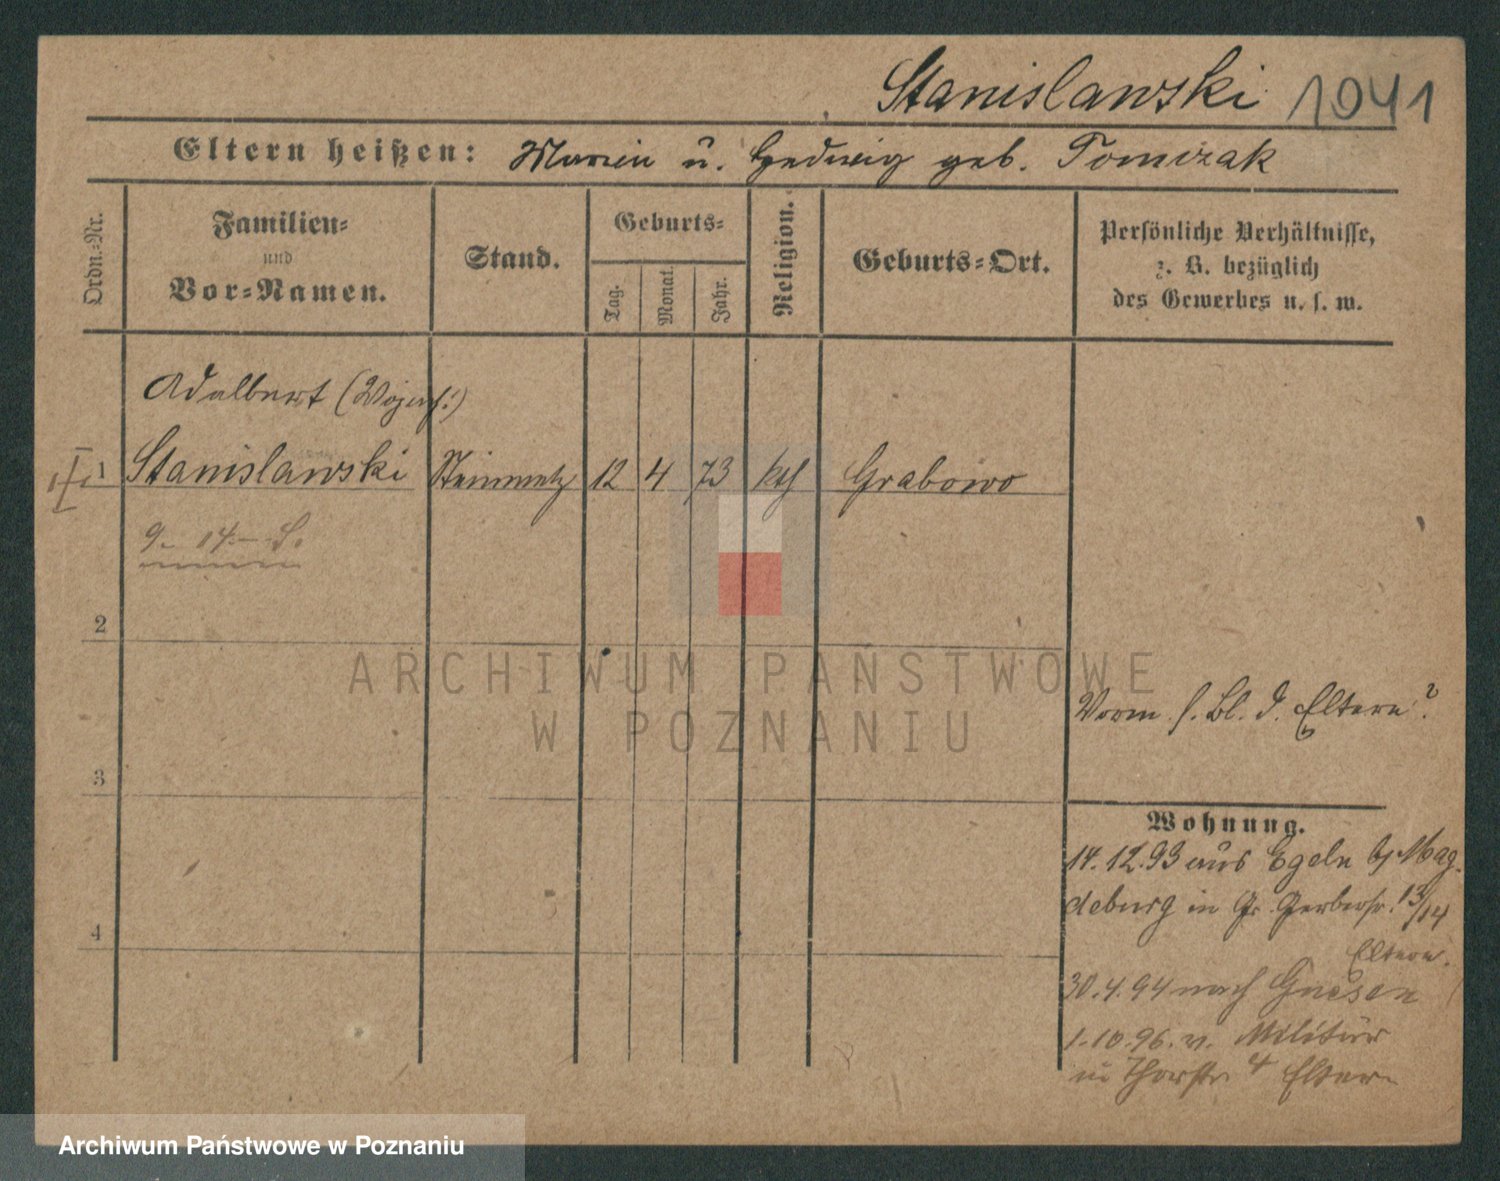 Stanislawski 1041
Eltern heißen: Marcin u. Hedwig geb. Tomczak
Ordn.=Nr.
Familien=
und
Vor=Namen.
Stand.
Geburts=
Tag.
Monat.
Jahr.
Religion.
Geburts=Ort.
Persönliche Verhältnisse,
z. B. bezüglich
des Gewerbes u. s. w.
Adalbert
1 Stanislawski Steinmetz 12 4 73 kth Grabowo
2
3
4
Vorm s. Bl. d. Eltern
Wohnung.
14.12.93 aus Egeln b/ Mag
deburg in Gr. Gerberstr. 13/14
Eltern.
30.4.94 nach Gnesen
1.10.96. v. Militär
in Thorstr. 4 Eltern
ARCHIWUM PAŃSTWOWE
W POZNANIU
Archiwum Państwowe w Poznaniu